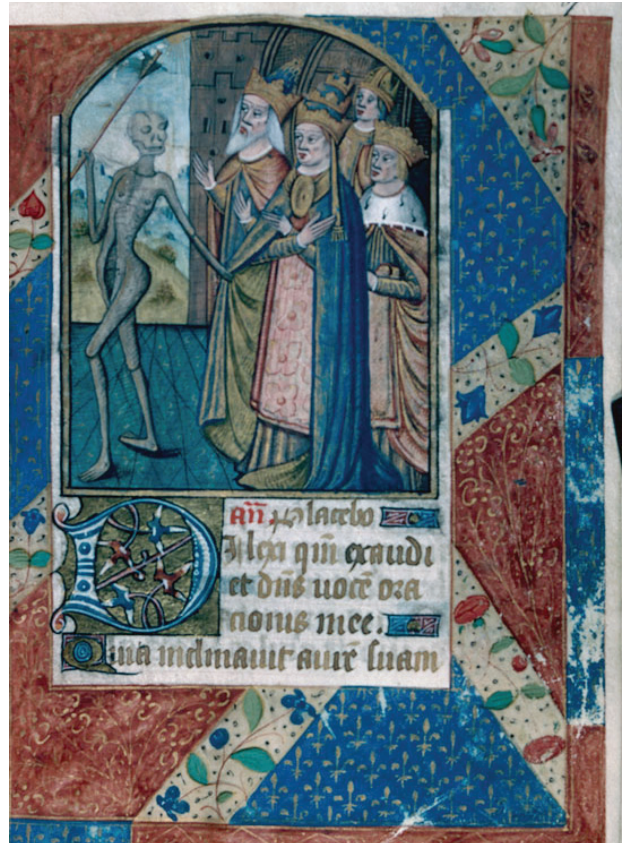 Añ. Placebo
Dilexi qm̄ exaudi
et dn̄s uocē ora
tionis mee.
Quia inclinauit aurē suam